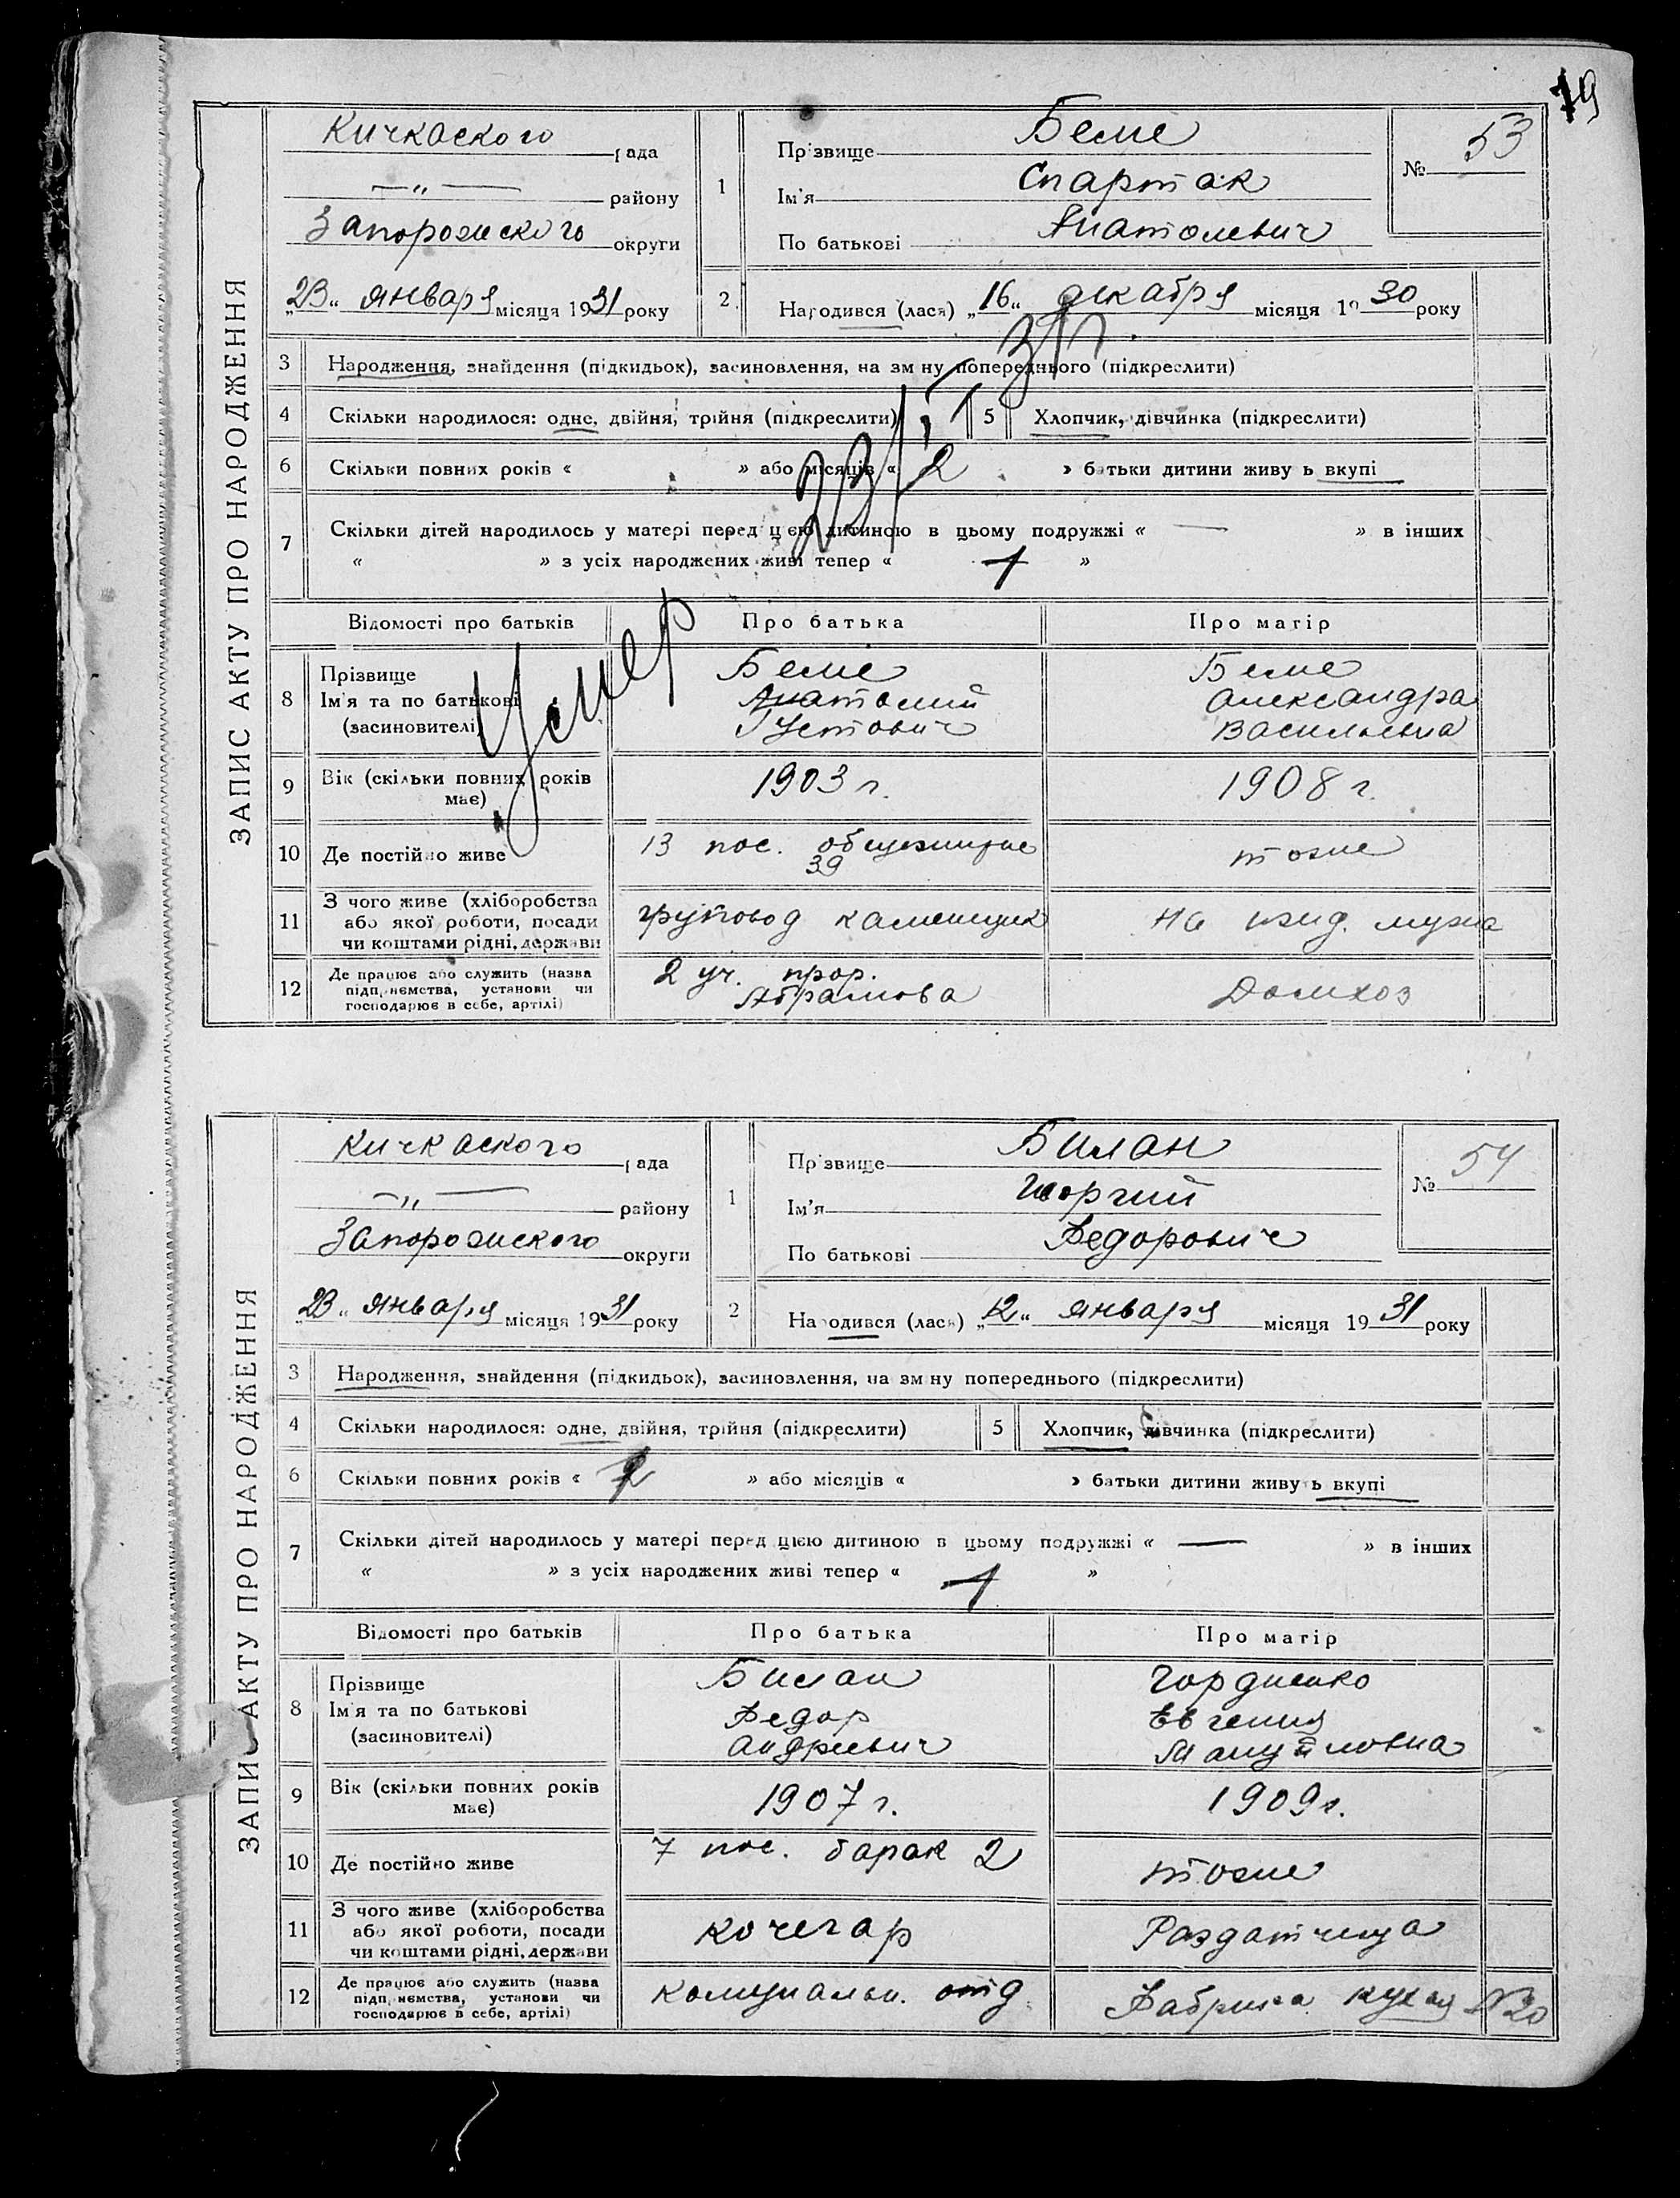 19
ЗАПИС АКТУ ПРО НАРОДЖЕННЯ
Кичкаского рада
—„— району
Запорожского округи
„23„ января місяця 1931 року
1
Прізвище Беме
Ім'я Спартак
По батькові Анатолевич
№ 53
2 Народився (лася) „16„ декабря місяця 1930 року
3 Народження, знайдення (підкидьок), засиновлення, на зміну попереднього (підкреслити)
4 Скільки народилося: одне, двійня, трійня (підкреслити)
5 Хлопчик, дівчинка (підкреслити)
6 Скільки повних років « » або місяців « 2 » батьки дитини живуть вкупі
7 Скільки дітей народилось у матері перед цією дитиною в цьому подружжі « — » в інших
« » з усіх народжених живі тепер « 1 »
Умер
Відомості про батьків Про батька Про матір
8 Прізвище Беме Беме
Ім'я та по батькові Анатолий Александра
(засиновителі) Густович Васильевна
9 Вік (скільки повних років має) 1903 г. 1908 г.
10 Де постійно живе 13 пос. общежитие 39 тоже
11 З чого живе (хліборобства або якої роботи, посади чи коштами рідні, держави груповод каменщик на ижд. мужа
12 Де працює або служить (назва підприємства, установи чи господарює в себе, артілі) 2 уч. прор. Абрамова Домхоз
ЗАПИС АКТУ ПРО НАРОДЖЕННЯ
Кичкаского рада
—„— району
Запорожского округи
„23„ января місяця 1931 року
1
Прізвище Билан
Ім'я Георгий
По батькові Федорович
№ 54
2 Народився (лася) „12„ января місяця 1931 року
3 Народження, знайдення (підкидьок), засиновлення, на зміну попереднього (підкреслити)
4 Скільки народилося: одне, двійня, трійня (підкреслити)
5 Хлопчик, дівчинка (підкреслити)
6 Скільки повних років « 2 » або місяців « » батьки дитини живуть вкупі
7 Скільки дітей народилось у матері перед цією дитиною в цьому подружжі « — » в інших
« » з усіх народжених живі тепер « 1 »
Відомості про батьків Про батька Про матір
8 Прізвище Билан Гордиенко
Ім'я та по батькові Федор Евгения
(засиновителі) Андреевич Мануйловна
9 Вік (скільки повних років має) 1907 г. 1909 г.
10 Де постійно живе 7 пос. барак 2 тоже
11 З чого живе (хліборобства або якої роботи, посади чи коштами рідні, держави кочегар Раздатчица
12 Де працює або служить (назва підприємства, установи чи господарює в себе, артілі) комунальн. отд. Фабрика кухня №20